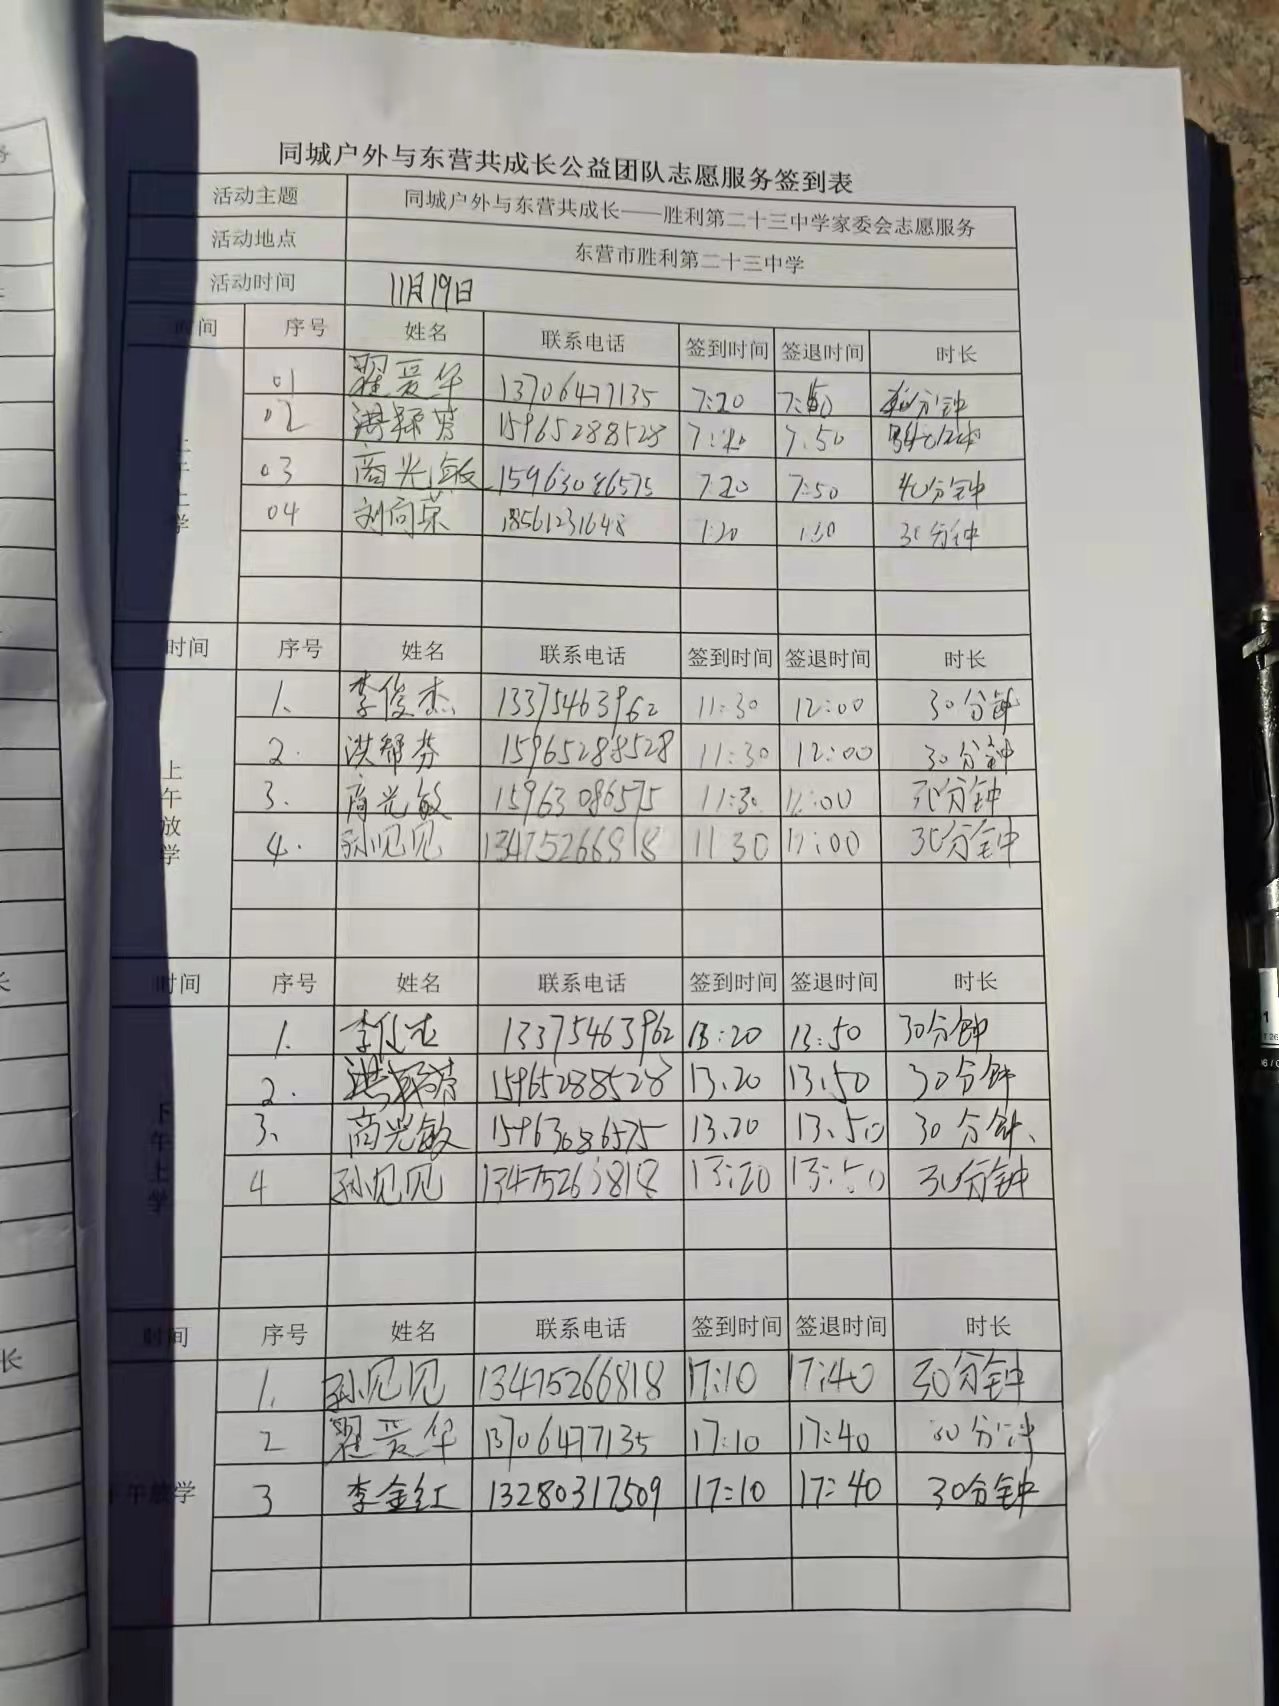 同城户外与东营共成长公益团队志愿服务签到表
活动主题 同城户外与东营共成长——胜利第二十三中学家委会志愿服务
活动地点 东营市胜利第二十三中学
活动时间 11月19日
时间 序号 姓名 联系电话 签到时间 签退时间 时长
上午上学
01 翟爱华 13706477135 7:20 7:50 分钟
02 15965288528 7:20 7.50
03 商光敏 15963086575 7:20 7:50 40分钟
04 刘向荣 18561231648 1:20 1:30 30分钟
时间 序号 姓名 联系电话 签到时间 签退时间 时长
上午放学
1、 李俊杰 13375463962 11:30 12:00 30分钟
2. 15965288528 11:30 12:00 30分钟
3. 商光敏 15963086575 11:30 12:00 30分钟
4. 孙见见 13475266818 11 30 12:00 30分钟
时间 序号 姓名 联系电话 签到时间 签退时间 时长
下午上学
1. 李俊杰 13375463962 13:20 13:50 30分钟
2. 15965288528 13.20 13.50 30分钟
3、 商光敏 15963086575 13.20 13.50 30分钟、
4 孙见见 13475263818 13:20 13:50 30分钟
时间 序号 姓名 联系电话 签到时间 签退时间 时长
下午放学
1. 孙见见 13475266818 17:10 17:40 30分钟
2 翟爱华 13706477135 17:10 17:40 30分钟
3 李金红 13280317509 17:10 17:40 30分钟
长
长